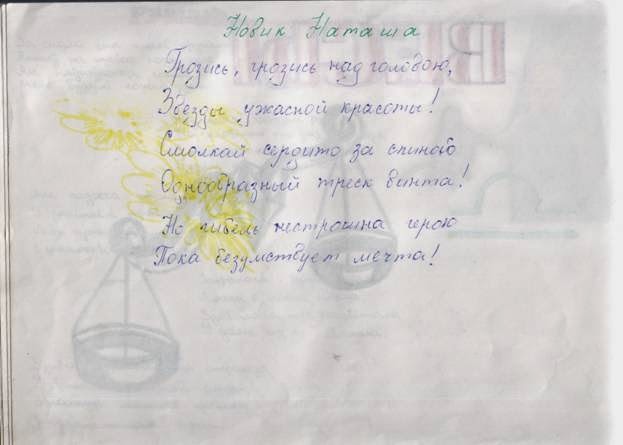 Новик Наташа
Грозись, грозись над головою,
Звезды ужасной красоты!
Смолкай сердито за спиною
Однообразный треск винта!
Но гибель нестрашна герою
Пока безумствует мечта!